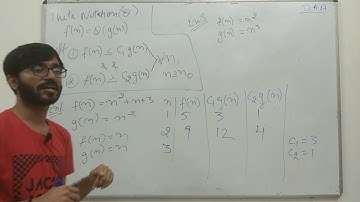 Theta Notation (θ)
f(n) = θ(g(n))
① f(n) ≤ C₁g(n)
& &
② f(n) ≥ C₂g(n)
n, n₀
n ≥ n₀
f(n) = n²
g(n) = n³
DAA
f(n) = n² + n + 3
g(n) = n²
f(n) = n
g(n) = n
n f(n) C₁g(n) C₂g(n)
1 5 3 1
2 9 12 4
3
C₁ = 3
C₂ = 1
JAC